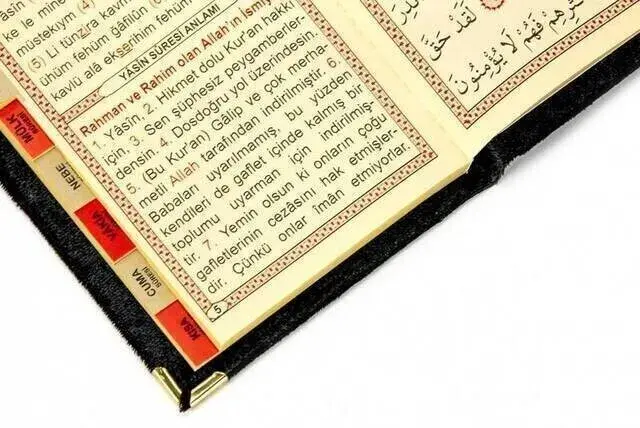 ke le mine
müstekym (4)
(5) Li tünzira kavm
ühüm fehüm ğâfilûn (6)
kavlü alâ ekserihim fehüm
YÂSİN SÛRESİ ANLAMI
Rahman ve Rahim olan Allah'ın İsmiy
1. Yâsîn. 2. Hikmet dolu Kur'an hakkı
için, 3. Sen şüphesiz peygamberler-
densin. 4. Dosdoğru yol üzerindesin.
5. (Bu Kur'an) Gâlip ve çok merha-
metli Allah tarafından indirilmiştir. 6.
Babaları uyarılmamış, bu yüzden
kendileri de gaflet içinde kalmış bir
toplumu uyarman için indirilmiş-
tir. 7. Yemin olsun ki onların çoğu
gafletlerinin cezâsını hak etmişler-
dir. Çünkü onlar îmân etmiyorlar.
5
MÜLK
SÛRESİ
NEBE
VAKIA
CUMA
SÛRESİ
KISA
لَقَدْ حَقَّ
فَهُمْ لَا يُؤْمِنُونَ